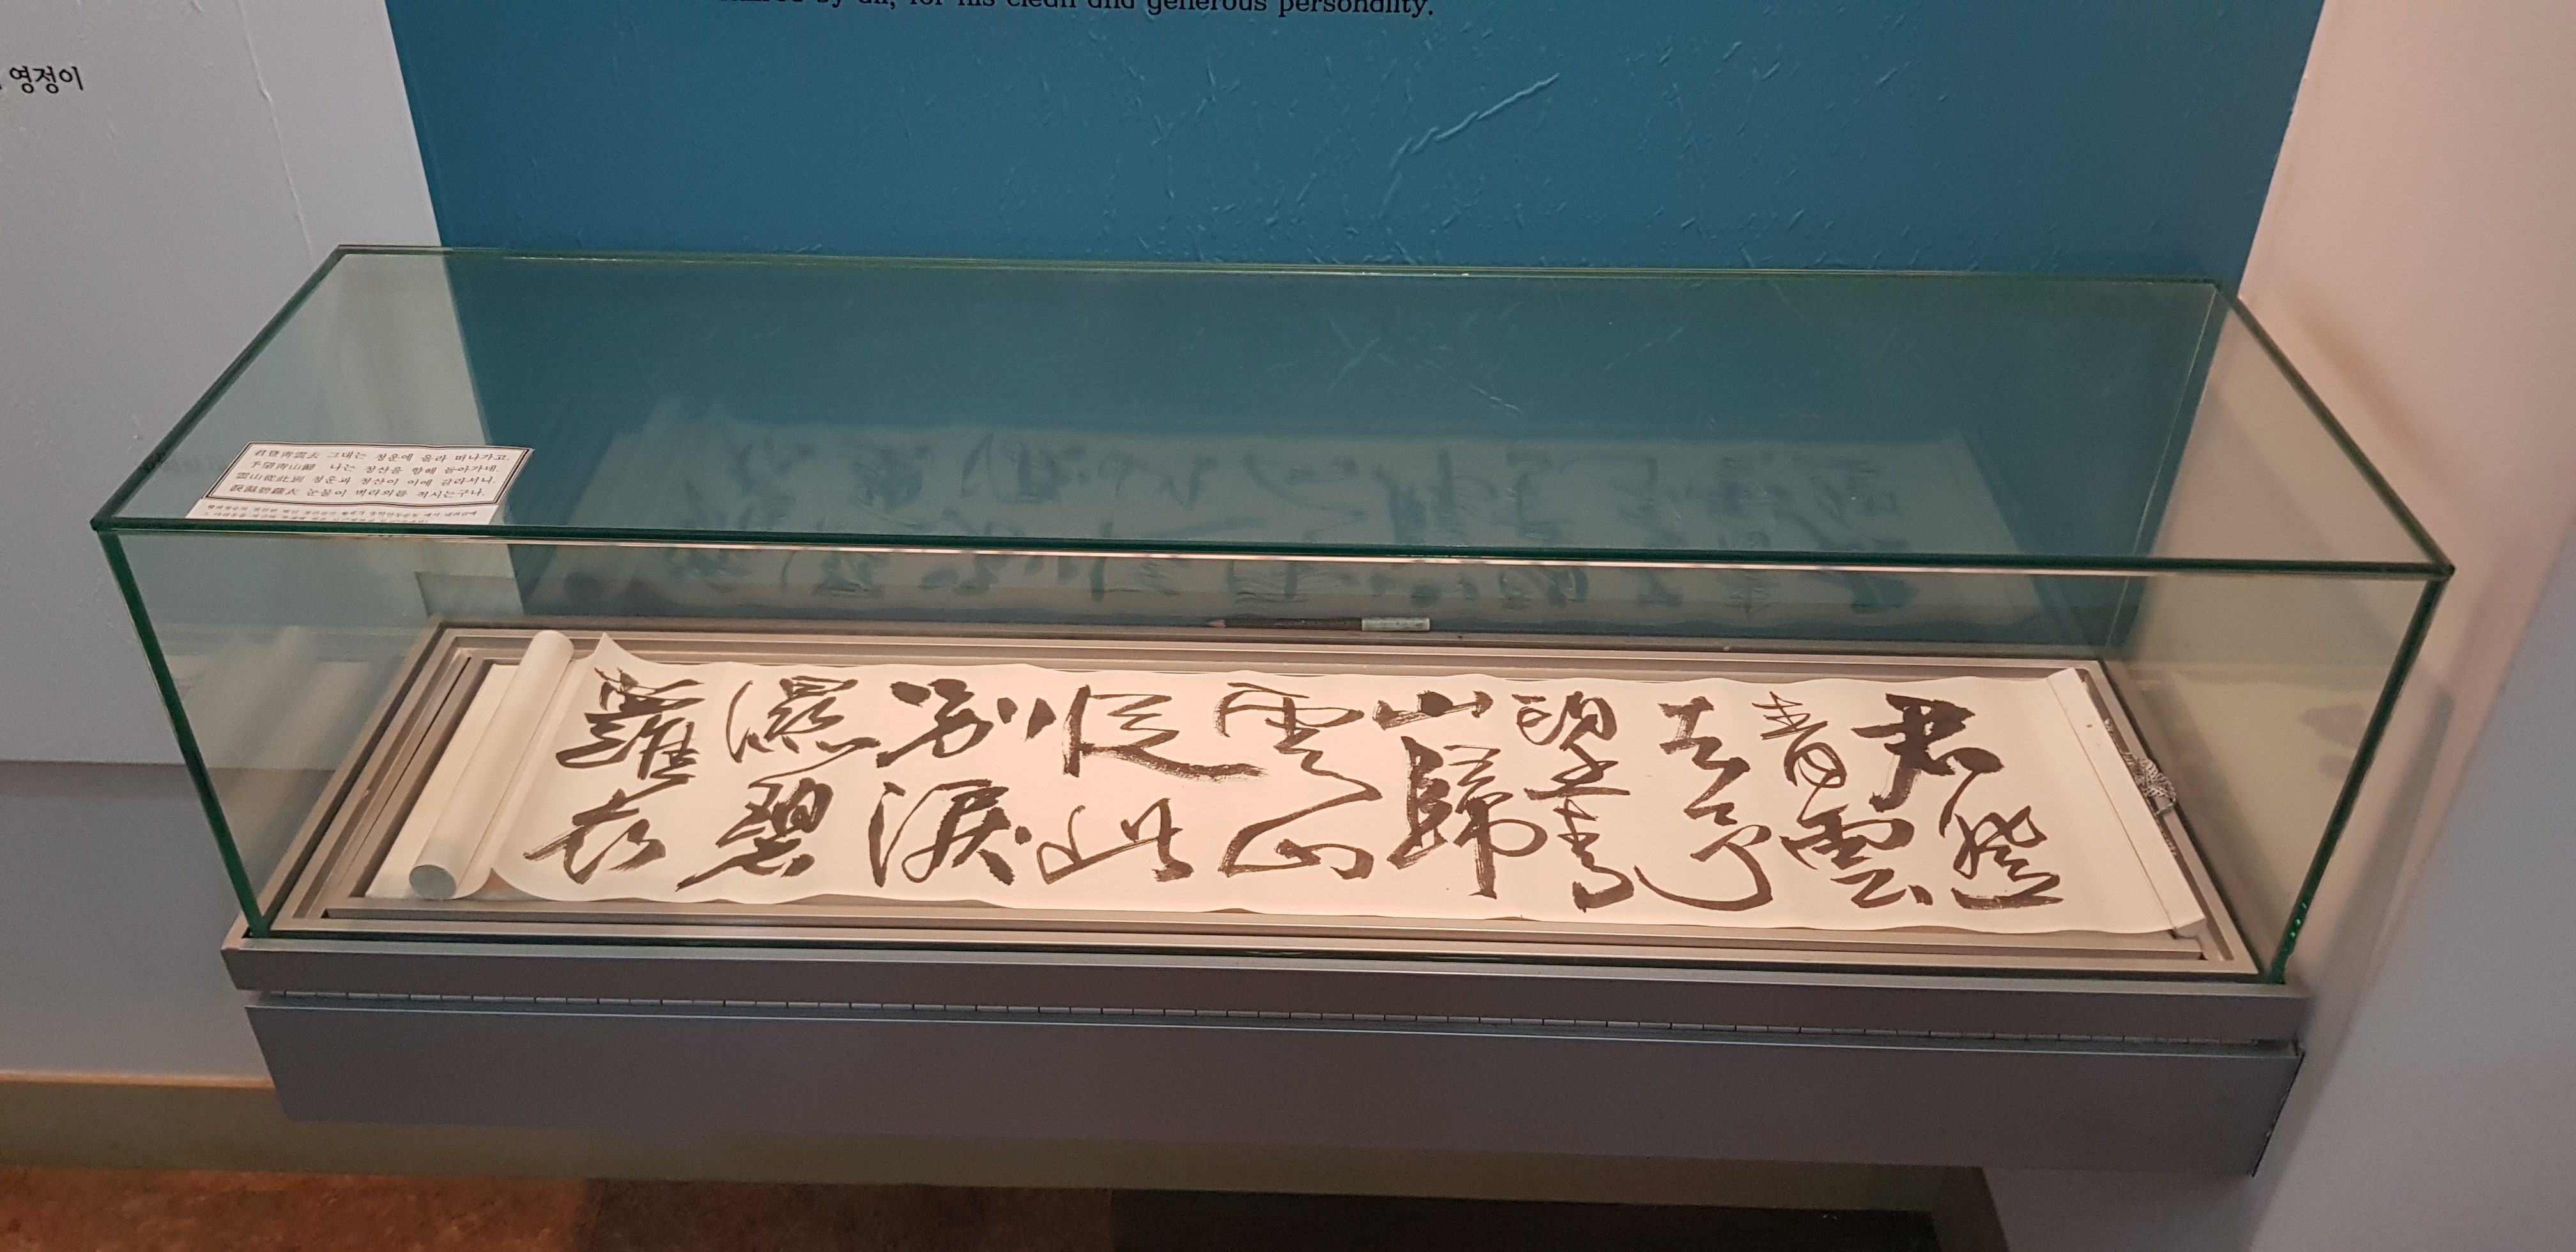 by all, for his clean and generous personality.
영정이
君登靑雲去 그대는 청운에 올라 떠나가고.
予望靑山歸 나는 청산을 향해 돌아가네.
雲山從此別 청운과 청산이 이에 갈라서니.
淚濕碧蘿衣 눈물이 벽라의를 적시는구나.
君登
靑雲
去予
望靑
山歸
雲山
從此
別淚
濕碧
蘿衣